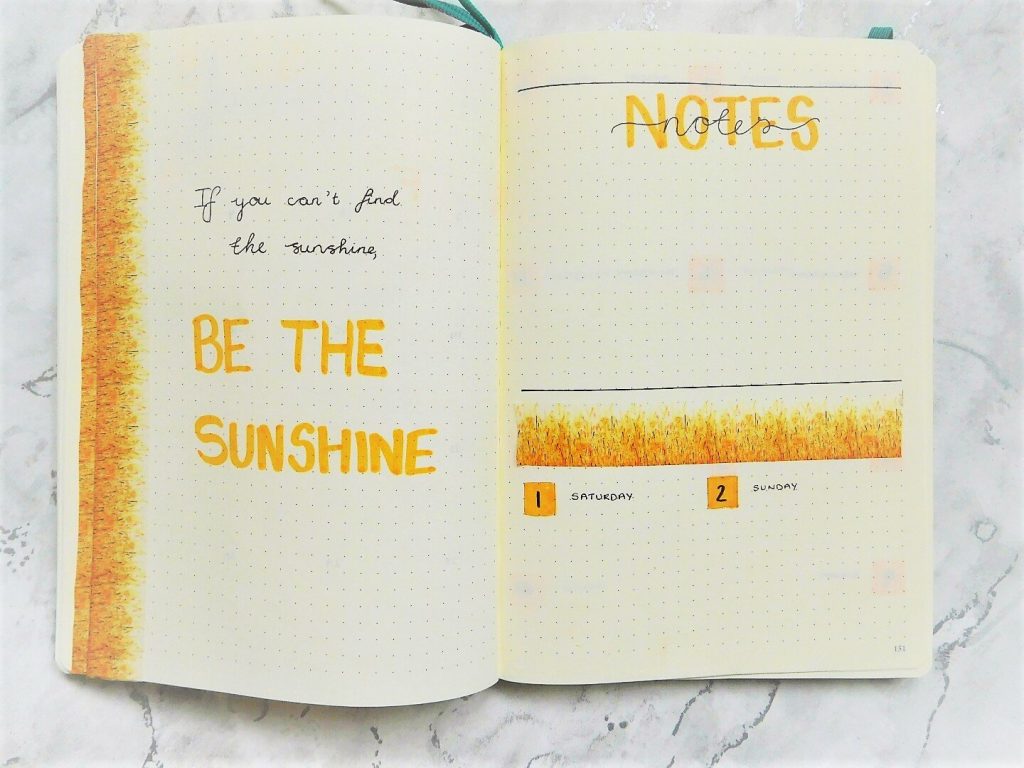 If you can't find
the sunshine,
BE THE
SUNSHINE
NOTES
notes
1 SATURDAY
2 SUNDAY
151